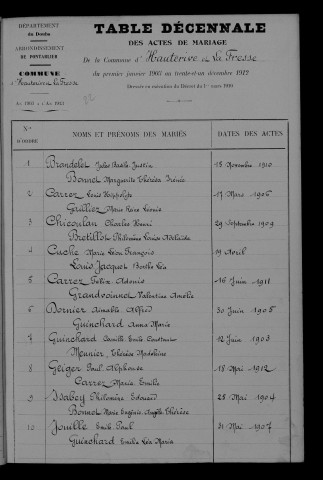 DÉPARTEMENT
du Doubs
ARRONDISSEMENT
DE PONTARLIER
COMMUNE
d'Hauterive la Fresse
An 1903 à An 1912
TABLE DÉCENNALE
DES ACTES DE MARIAGE
De la Commune d'Hauterive la Fresse
du premier janvier 1903 au trente-et-un décembre 1912
Dressée en exécution du Décret du
Nos D'ORDRE NOMS ET PRÉNOMS DES MARIÉS DATES DES ACTES
1 Brandelet Jules Basile Justin 18 Novembre 1910
Bonnet Marguerite Thérèse Irénée
2 Carrez Louis Hippolyte 17 Mars 1906
Grilliez Marie Rose Léonie
3 Chicoulan Charles Henri 29 Septembre 1909
Bretillot Philomène Louise Adélaïde
4 Cuche Marie Léon François 19 Avril
Louis Jacquet Berthe Léa
5 Carrez Félix Adonis 16 Juin 1911
Grandvoinnet Valentine Amélie
6 Dornier Aimable Alfred 30 Juin 1905
Guinchard Anna Marie
7 Guinchard Camille Emile Constant 12 Juin 1903
Meunier Thérèse Madeleine
8 Geiger Paul Alphonse 18 Mai 1912
Carrez Maria Emile
9 Isabey Philomène Edouard 25 Mai 1904
Bonnet Marie Eugénie Angèle Thérèse
10 Jouille Emile Paul 31 Mai 1907
Guinchard Emilie Léa Maria